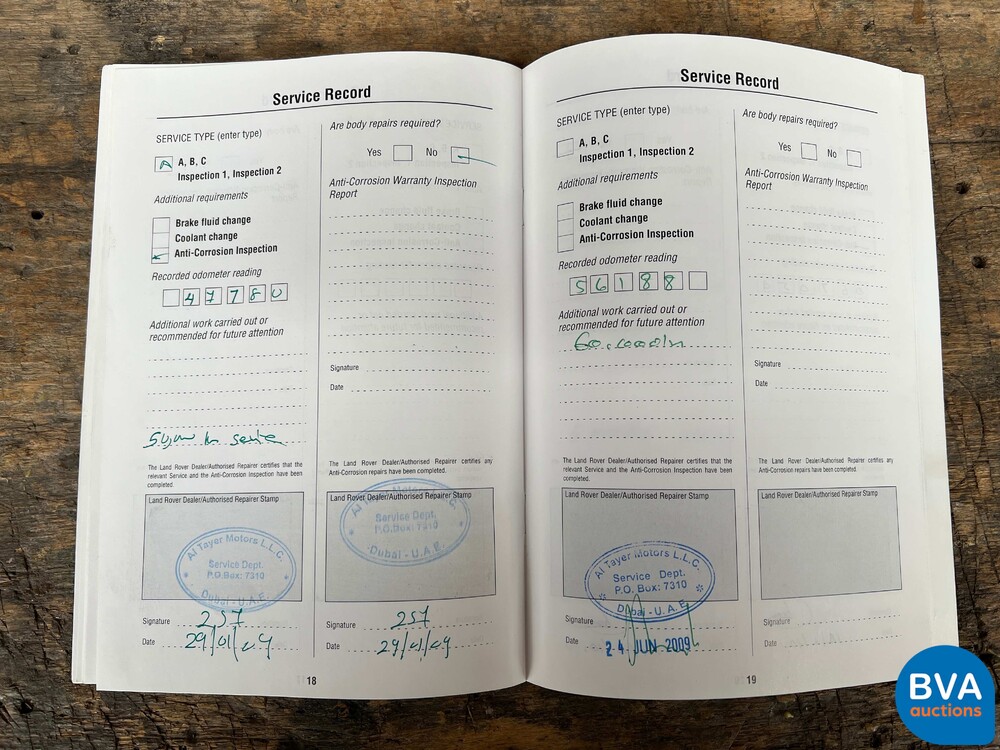 Service Record
SERVICE TYPE (enter type)
A
A, B, C
Inspection 1, Inspection 2
Additional requirements
Brake fluid change
Coolant change
Anti-Corrosion Inspection
Recorded odometer reading
47780
Additional work carried out or
recommended for future attention
The Land Rover Dealer/Authorised Repairer certifies that the
relevant Service and the Anti-Corrosion Inspection have been
completed.
Land Rover Dealer/Authorised Repairer Stamp
Al Tayer Motors L.L.C.
Service Dept.
P.O.Box: 7310
Dubai - U.A.E.
Signature 257
Date 29/01/09
Are body repairs required?
Yes No
Anti-Corrosion Warranty Inspection
Report
Signature
Date
The Land Rover Dealer/Authorised Repairer certifies any
Anti-Corrosion repairs have been completed.
Land Rover Dealer/Authorised Repairer Stamp
Al Tayer Motors L.L.C.
Service Dept.
P.O.Box: 7310
Dubai - U.A.E.
Signature 257
Date 29/01/09
18
Service Record
SERVICE TYPE (enter type)
A, B, C
Inspection 1, Inspection 2
Additional requirements
Brake fluid change
Coolant change
Anti-Corrosion Inspection
Recorded odometer reading
56188
Additional work carried out or
recommended for future attention
The Land Rover Dealer/Authorised Repairer certifies that the
relevant Service and the Anti-Corrosion Inspection have been
completed.
Land Rover Dealer/Authorised Repairer Stamp
Al Tayer Motors L.L.C.
Service Dept.
P.O. Box: 7310
Dubai - U.A.E.
Signature
Date 24 JUN 2009
Are body repairs required?
Yes No
Anti-Corrosion Warranty Inspection
Report
Signature
Date
The Land Rover Dealer/Authorised Repairer certifies any
Anti-Corrosion repairs have been completed.
Land Rover Dealer/Authorised Repairer Stamp
Signature
Date
19
BVA
auctions